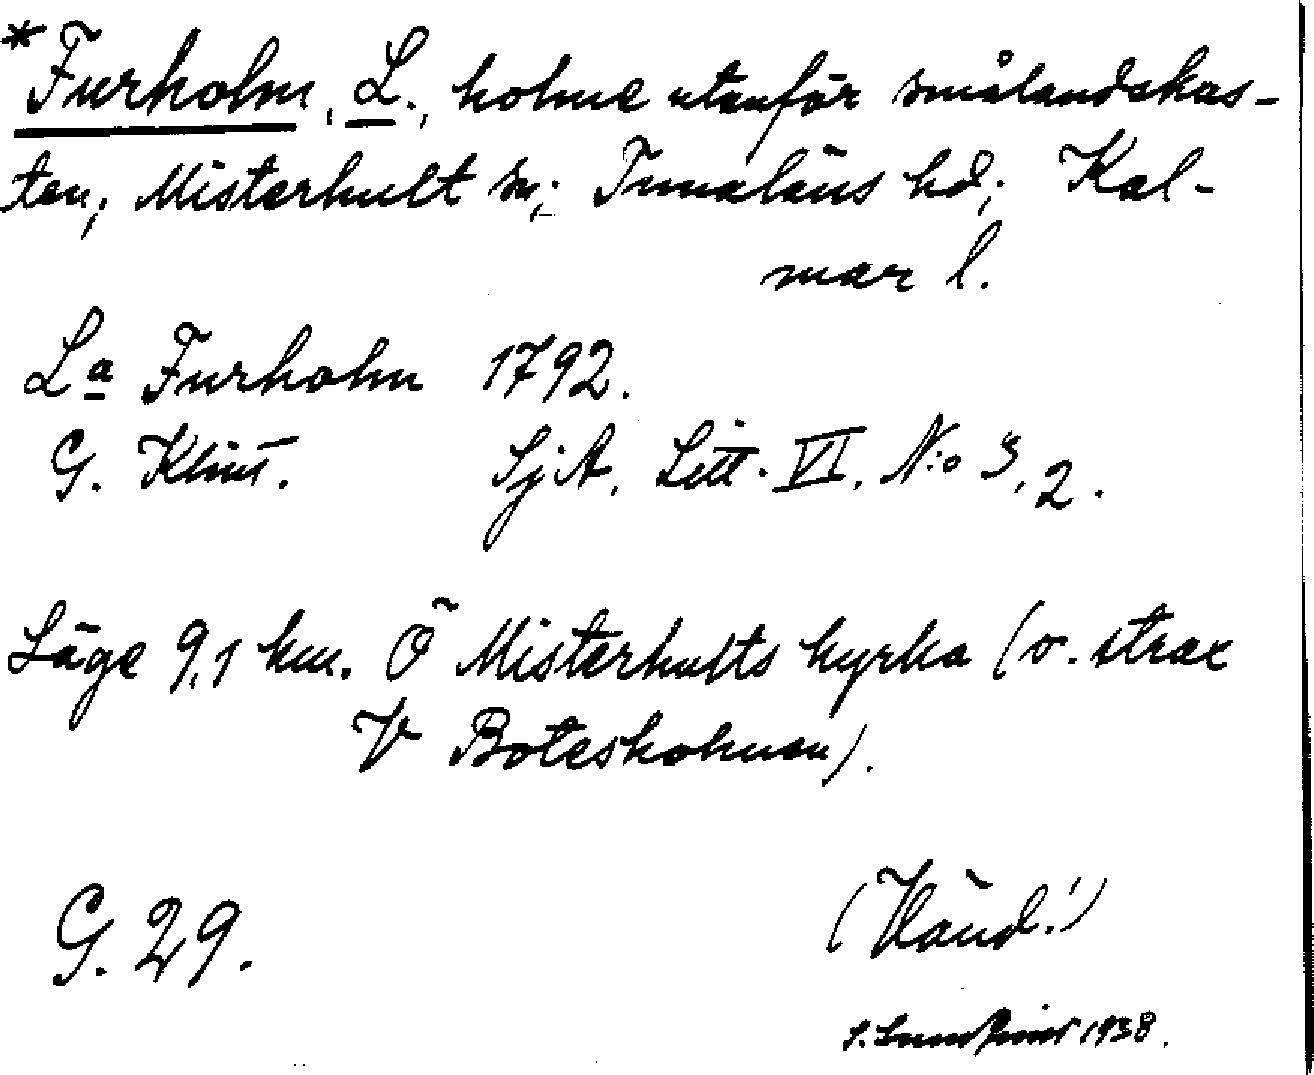 *Furholm, L., holme utanför smålandskus-
ten, Misterhult sn; Tunaläns hd; Kal-
mar l.
La Furholm 1792.
G. Klint. SjA. Litt. VI. N:o 3,2.
Läge 9,1 km. Ö Misterhults kyrka (o. strax
V Botesholmen).
G. 29.
(Vänd!)
1938.